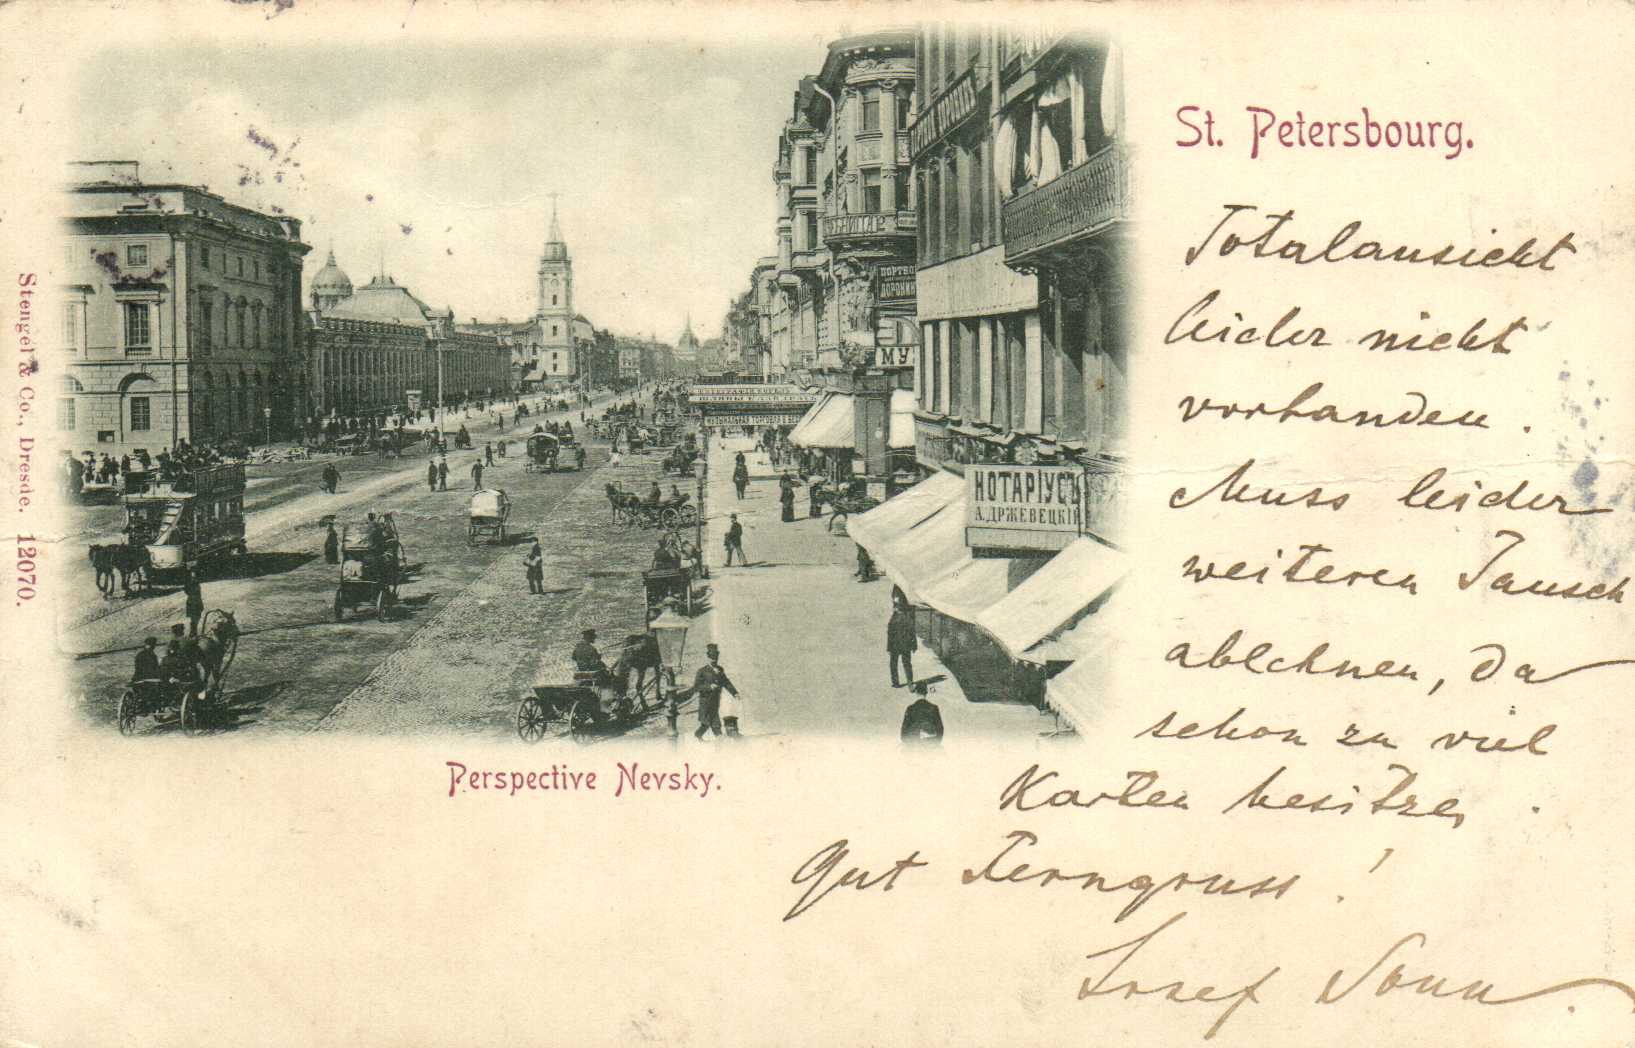 St. Petersbourg.
Totalansicht
leider nicht
vorhanden.
Muss leider
weiteren Tausch
ablehnen, da
schon zu viel
Karten besitze.
Gut Ferngruss!
Josef Sonn
Perspective Nevsky.
Stengel & Co., Dresde. 12070.
НОТАРІУСЪ
А. ДРЖЕВЕЦКІЙ
МУ